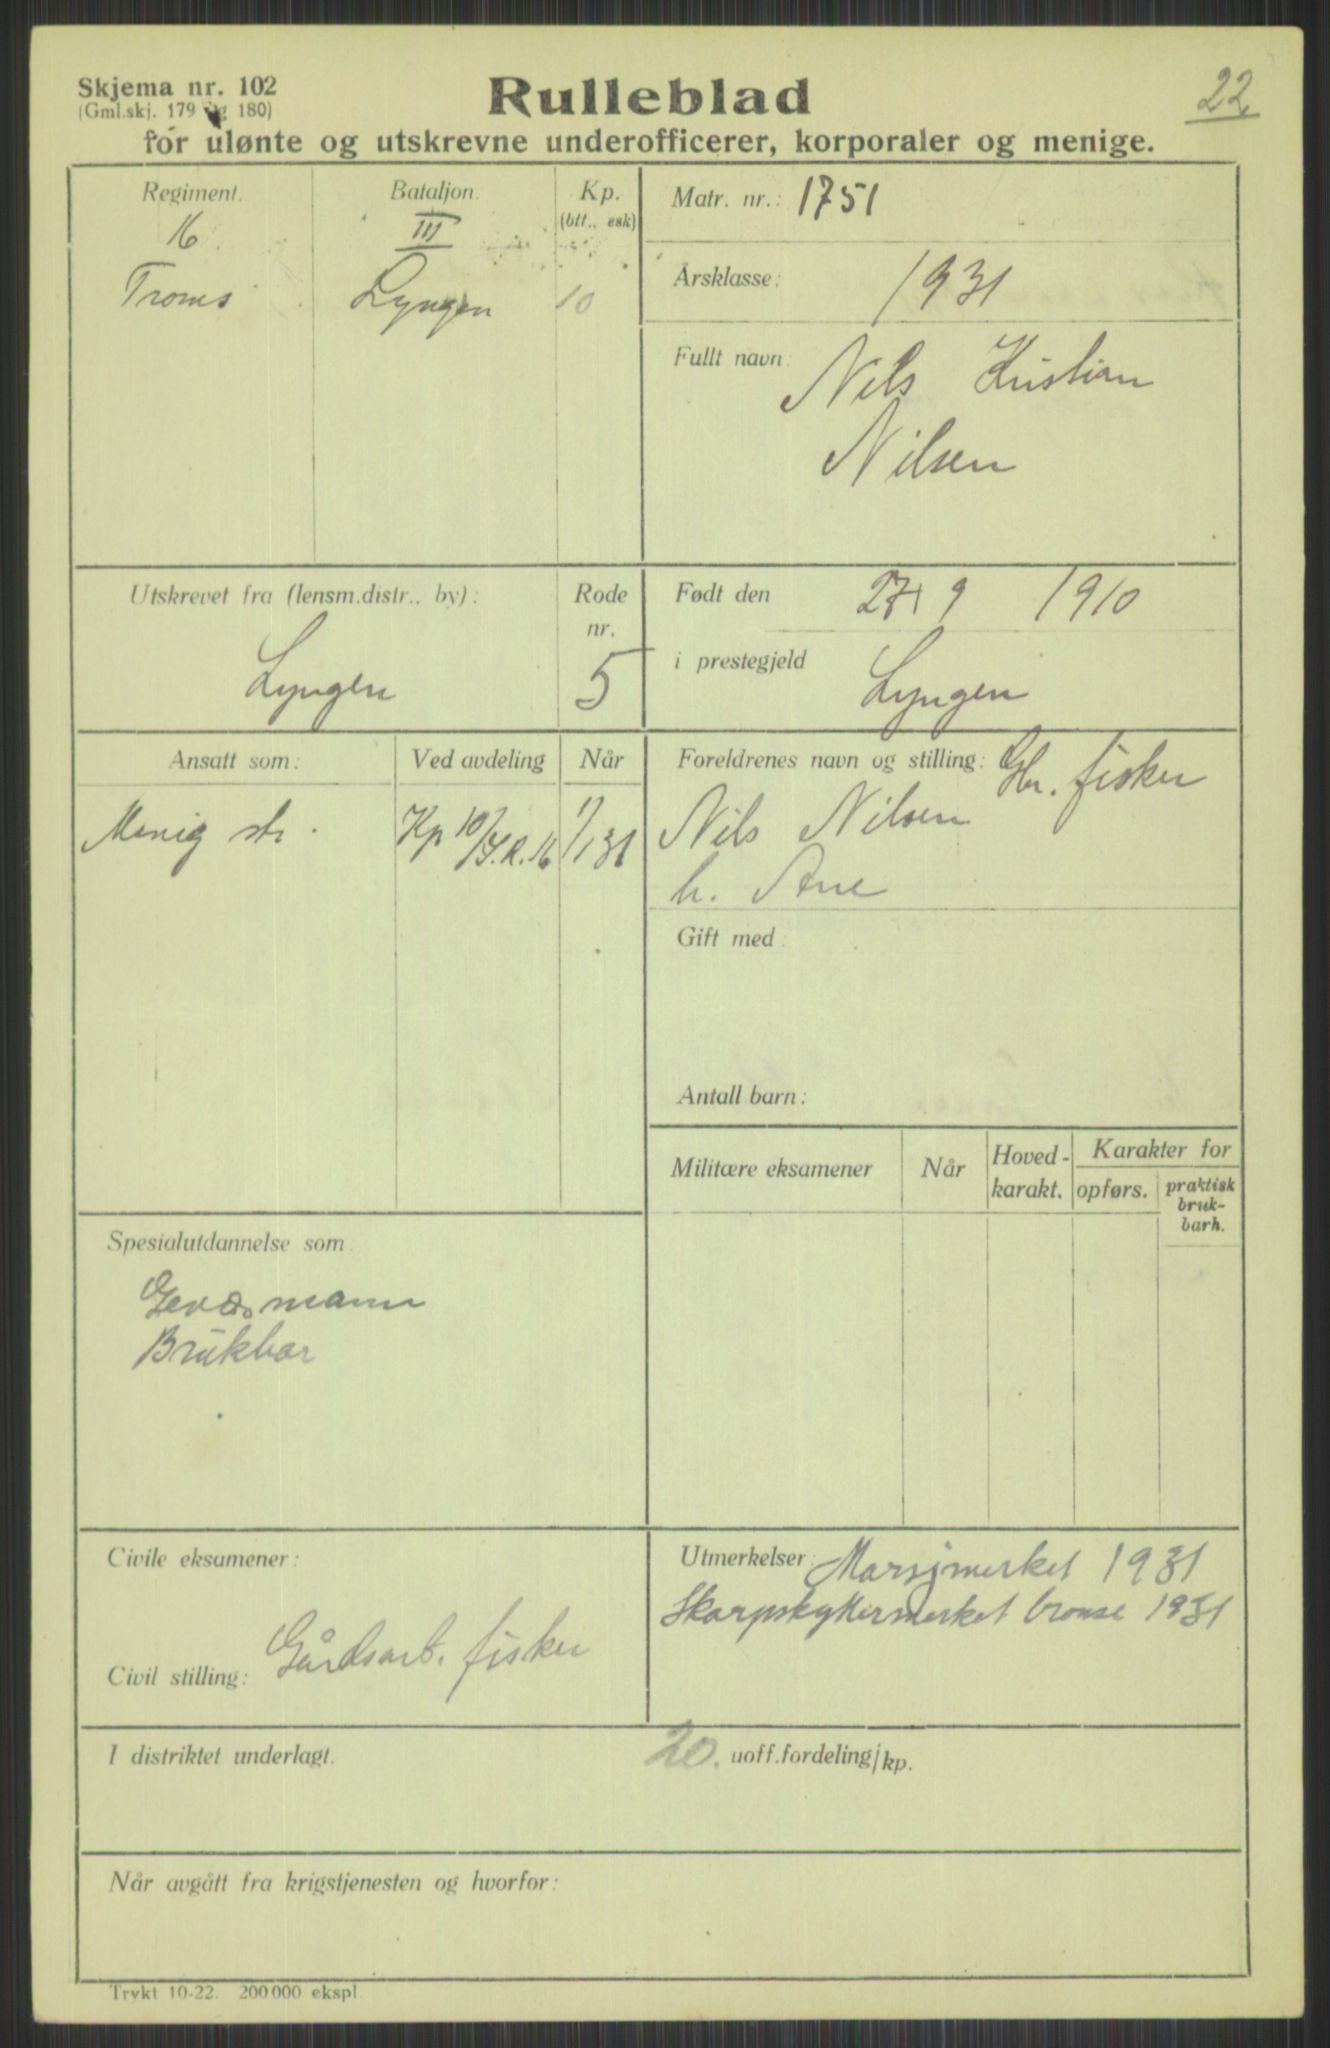 Skjema nr. 102
(Gml.skj. 179 og 180)
Rulleblad
22
for ulønte og utskrevne underofficerer, korporaler og menige.
Regiment.
16
Troms
Bataljon.
III
Lyngen
Kp.
(btt., esk)
10
Matr. nr.: 1751
Årsklasse: 1931
Fullt navn: Nils Kristian
Nilsen
Utskrevet fra (lensm.distr., by):
Lyngen
Rode
nr.
5
Født den 27 9 1910
i prestegjeld Lyngen
Ansatt som:
Menig str.
Ved avdeling
Kp 10/I.R. 16
Når
1/1 31
Foreldrenes navn og stilling: Gbr. fisker
Nils Nilsen
h. Ane
Gift med:
Antall barn:
Militære eksamener
Når
Hoved-
karakt.
Karakter for
opførs.
praktisk
bruk-
barh.
Spesialutdannelse som:
Geværmann
Brukbar
Civile eksamener:
Civil stilling: Gårdsarb. fisker
Utmerkelser: Marsjmerket 1931
Skarpskyttermerket bronse 1931
I distriktet underlagt.
20. uoff.fordeling/kp.
Når avgått fra krigstjenesten og hvorfor:
Trykt 10-22. 200 000 ekspl.